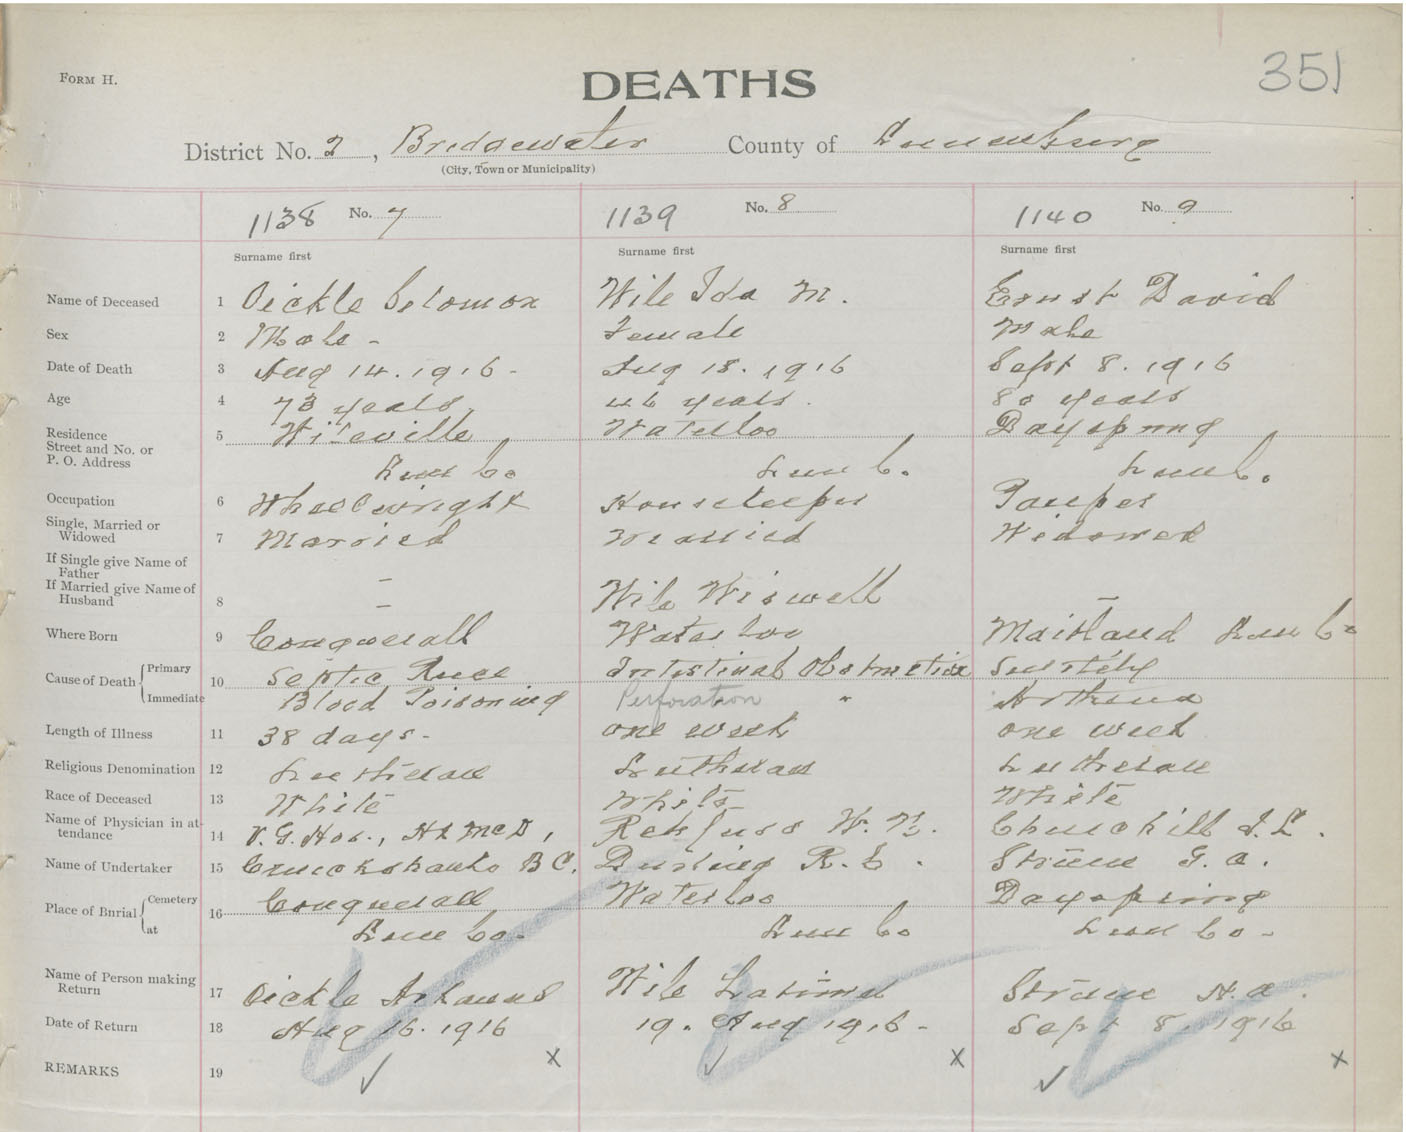 351
FORM H.
DEATHS
District No. 2, Bridgewater County of Lunenburg
(City, Town or Municipality)
1138 No. 7 1139 No. 8 1140 No. 9
Surname first Surname first Surname first
Name of Deceased 1 Oickle Solomon Wile Ida M. Ernst David
Sex 2 Male - Female Male
Date of Death 3 Aug 14. 1916 - Aug 18. 1916 Sept 8. 1916
Age 4 73 years 46 years. 80 years
Residence Street and No. or P. O. Address 5 Wileville Waterloo Dayspring
Lun Co Lun C. Lun C.
Occupation 6 Wheelwright Housekeeper Pauper
Single, Married or Widowed 7 Married Married Widowed
If Single give Name of Father
If Married give Name of Husband 8 - - Wile Wiswell -
Where Born 9 Conquerall Waterloo Maitland Lun Co
Cause of Death Primary 10 Septic Intestinal Obstruction Senility
Immediate Blood Poisoning Perforation "
Length of Illness 11 38 days - one week one week
Religious Denomination 12 Lutheran Lutheran Lutheran
Race of Deceased 13 White White White
Name of Physician in attendance 14 V. G. Hos., Rehfuss W. N. Churchill J. L.
Name of Undertaker 15 Cruickshanks B C. R. E. G. A.
Place of Bnrial Cemetery 16 Conquerall Waterloo Dayspring
at Lun Co. Lun Co Lun Co -
Name of Person making Return 17 Oickle Wile
Date of Return 18 Aug 16. 1916 19. Aug 1916 - Sept 8. 1916
REMARKS 19 x x x